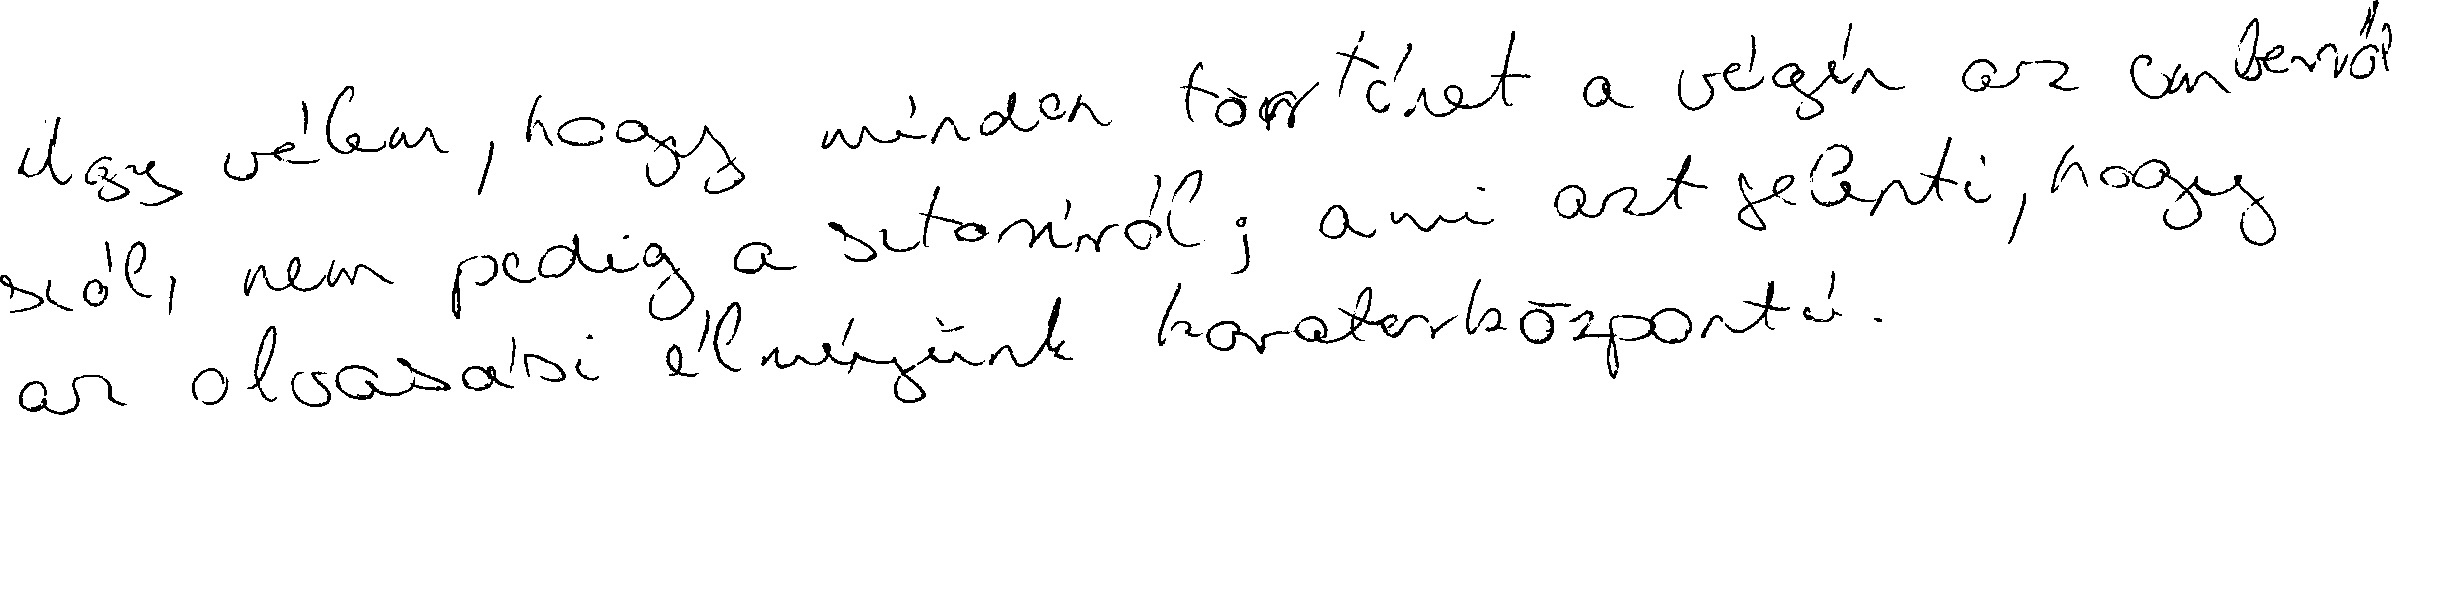 Úgy vélem, hogy minden történet a végén az emberről
szól, nem pedig a sztoriról; ami azt jelenti, hogy
az olvasási élményünk karakterközpontú.